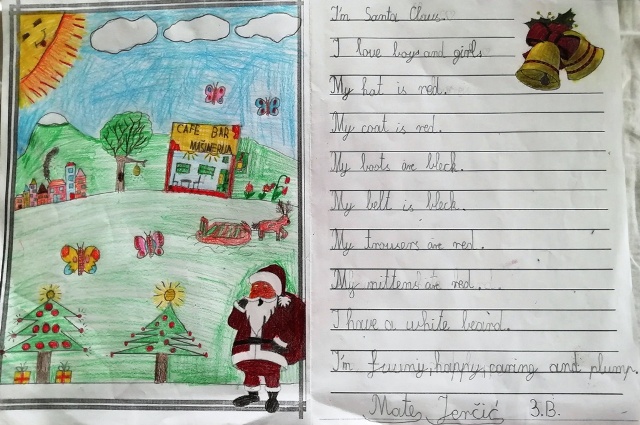 CAFE BAR
MAŠINERIJA
I'm Santa Claus.
I love boys and girls.
My hat is red.
My coat is red.
My boots are bleck.
My belt is bleck.
My trousers are red.
My mittens are red.
I have a white beard.
I'm fuuniy, happy, caring and plump.
Mates Jerčić 3.B.